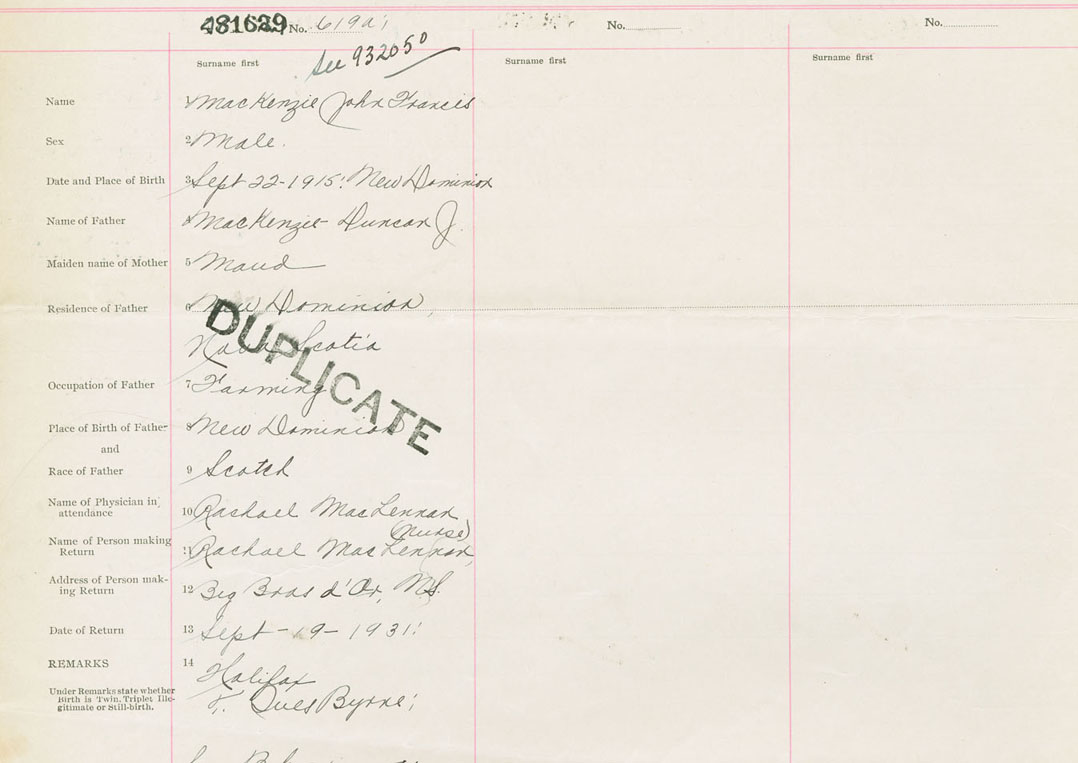 481639 No. 619a
No.
No.
See 932050
Surname first
Surname first
Surname first
Name 1 MacKenzie John Francis
Sex 2 Male.
Date and Place of Birth 3 Sept 22-1915. New Dominion
Name of Father 4 MacKenzie Duncan J.
Maiden name of Mother 5 Maud
Residence of Father 6 New Dominion,
Nova Scotia
DUPLICATE
Occupation of Father 7 Farming
Place of Birth of Father 8 New Dominion
and
Race of Father 9 Scotch
Name of Physician in attendance 10 Rachael MacLennan
(Nurse)
Name of Person making Return 11 Rachael MacLennan,
Address of Person making Return 12 Big Bras d'Or, N.S.
Date of Return 13 Sept-19-1931.
REMARKS 14 Halifax
Under Remarks state whether
Birth is Twin, Triplet Ille-
gitimate or Still-birth.
Byrne